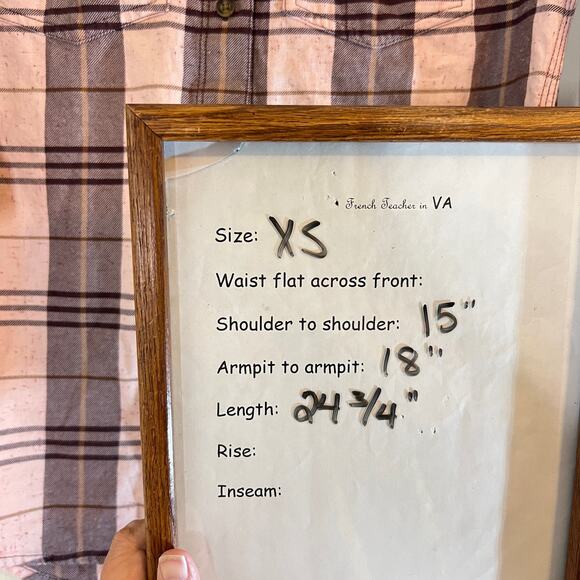 French Teacher in VA
Size: XS
Waist flat across front:
Shoulder to shoulder: 15"
Armpit to armpit: 18"
Length: 24 3/4"
Rise:
Inseam: